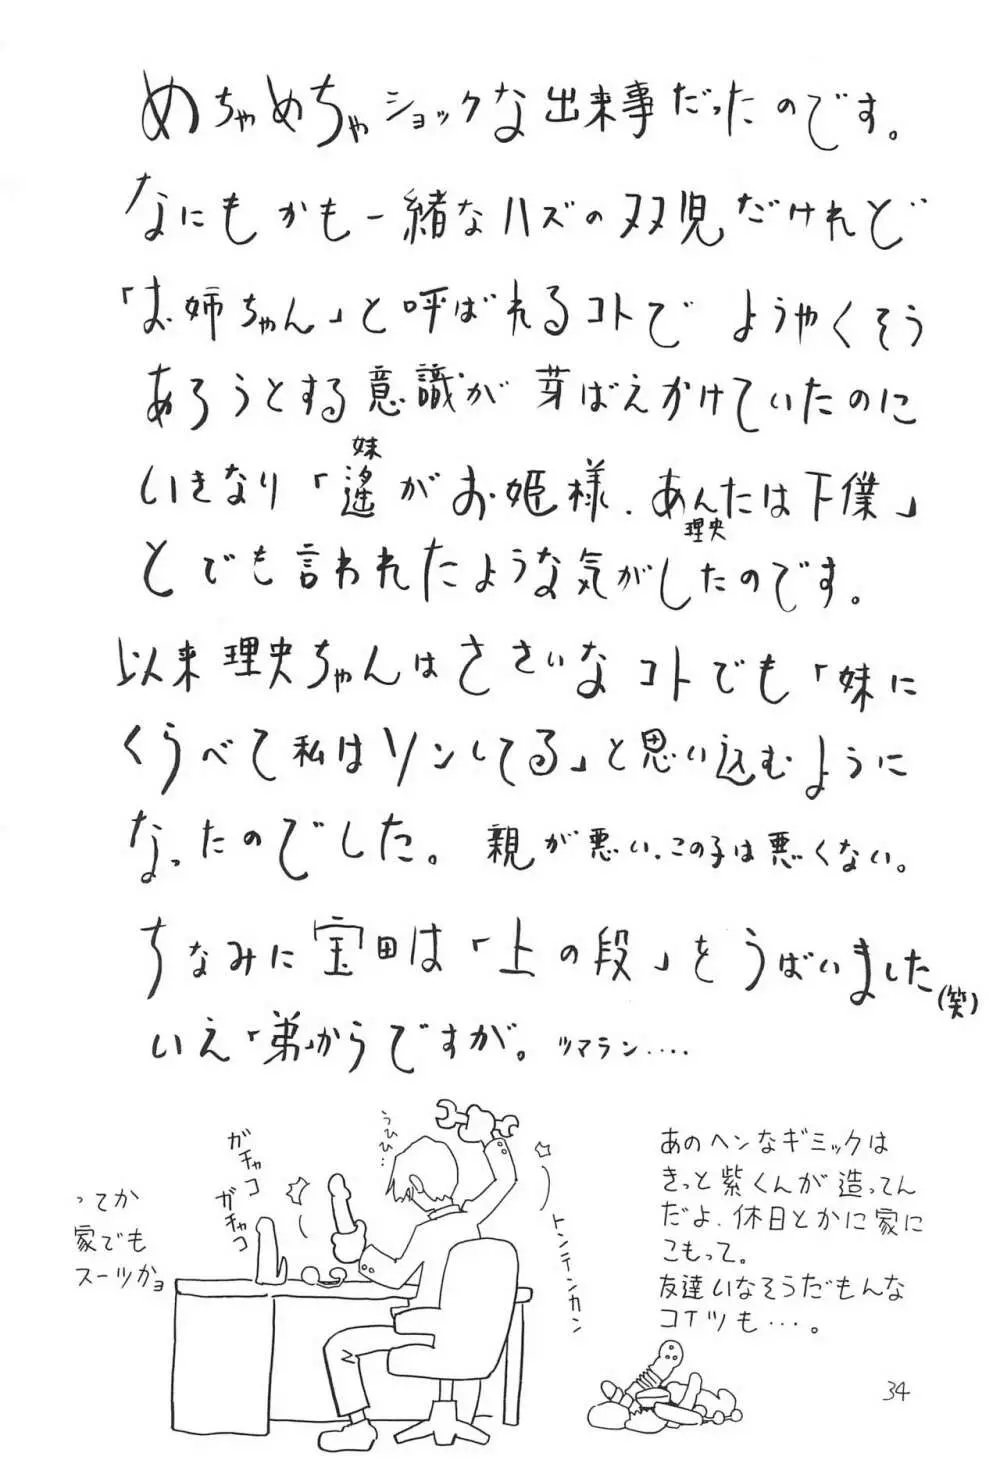 めちゃめちゃショックな出来事だったのです。
なにもかも一緒なハズの双児だけれど
「お姉ちゃん」と呼ばれるコトで ようやくそう
あろうとする意識が芽ばえかけていたのに
妹
いきなり「遙がお姫様、あんたは下僕」
理央
とでも言われたような気がしたのです。
以来理央ちゃんはささいなコトでも「妹に
くらべて私はソンしてる」と思い込むように
なったのでした。親が悪い、この子は悪くない。
ちなみに宝田は「上の段」をうばいました(笑)
いえ「弟」からですが。ツマラン‥‥
うひひ…
ガチャコ
ガチャコ
トンテンカン
ってか
家でも
スーツかョ
あのヘンなギミックは
きっと紫くんが造ってん
だよ、休日とかに家に
こもって。
友達いなそうだもんな
コイツも…。
34